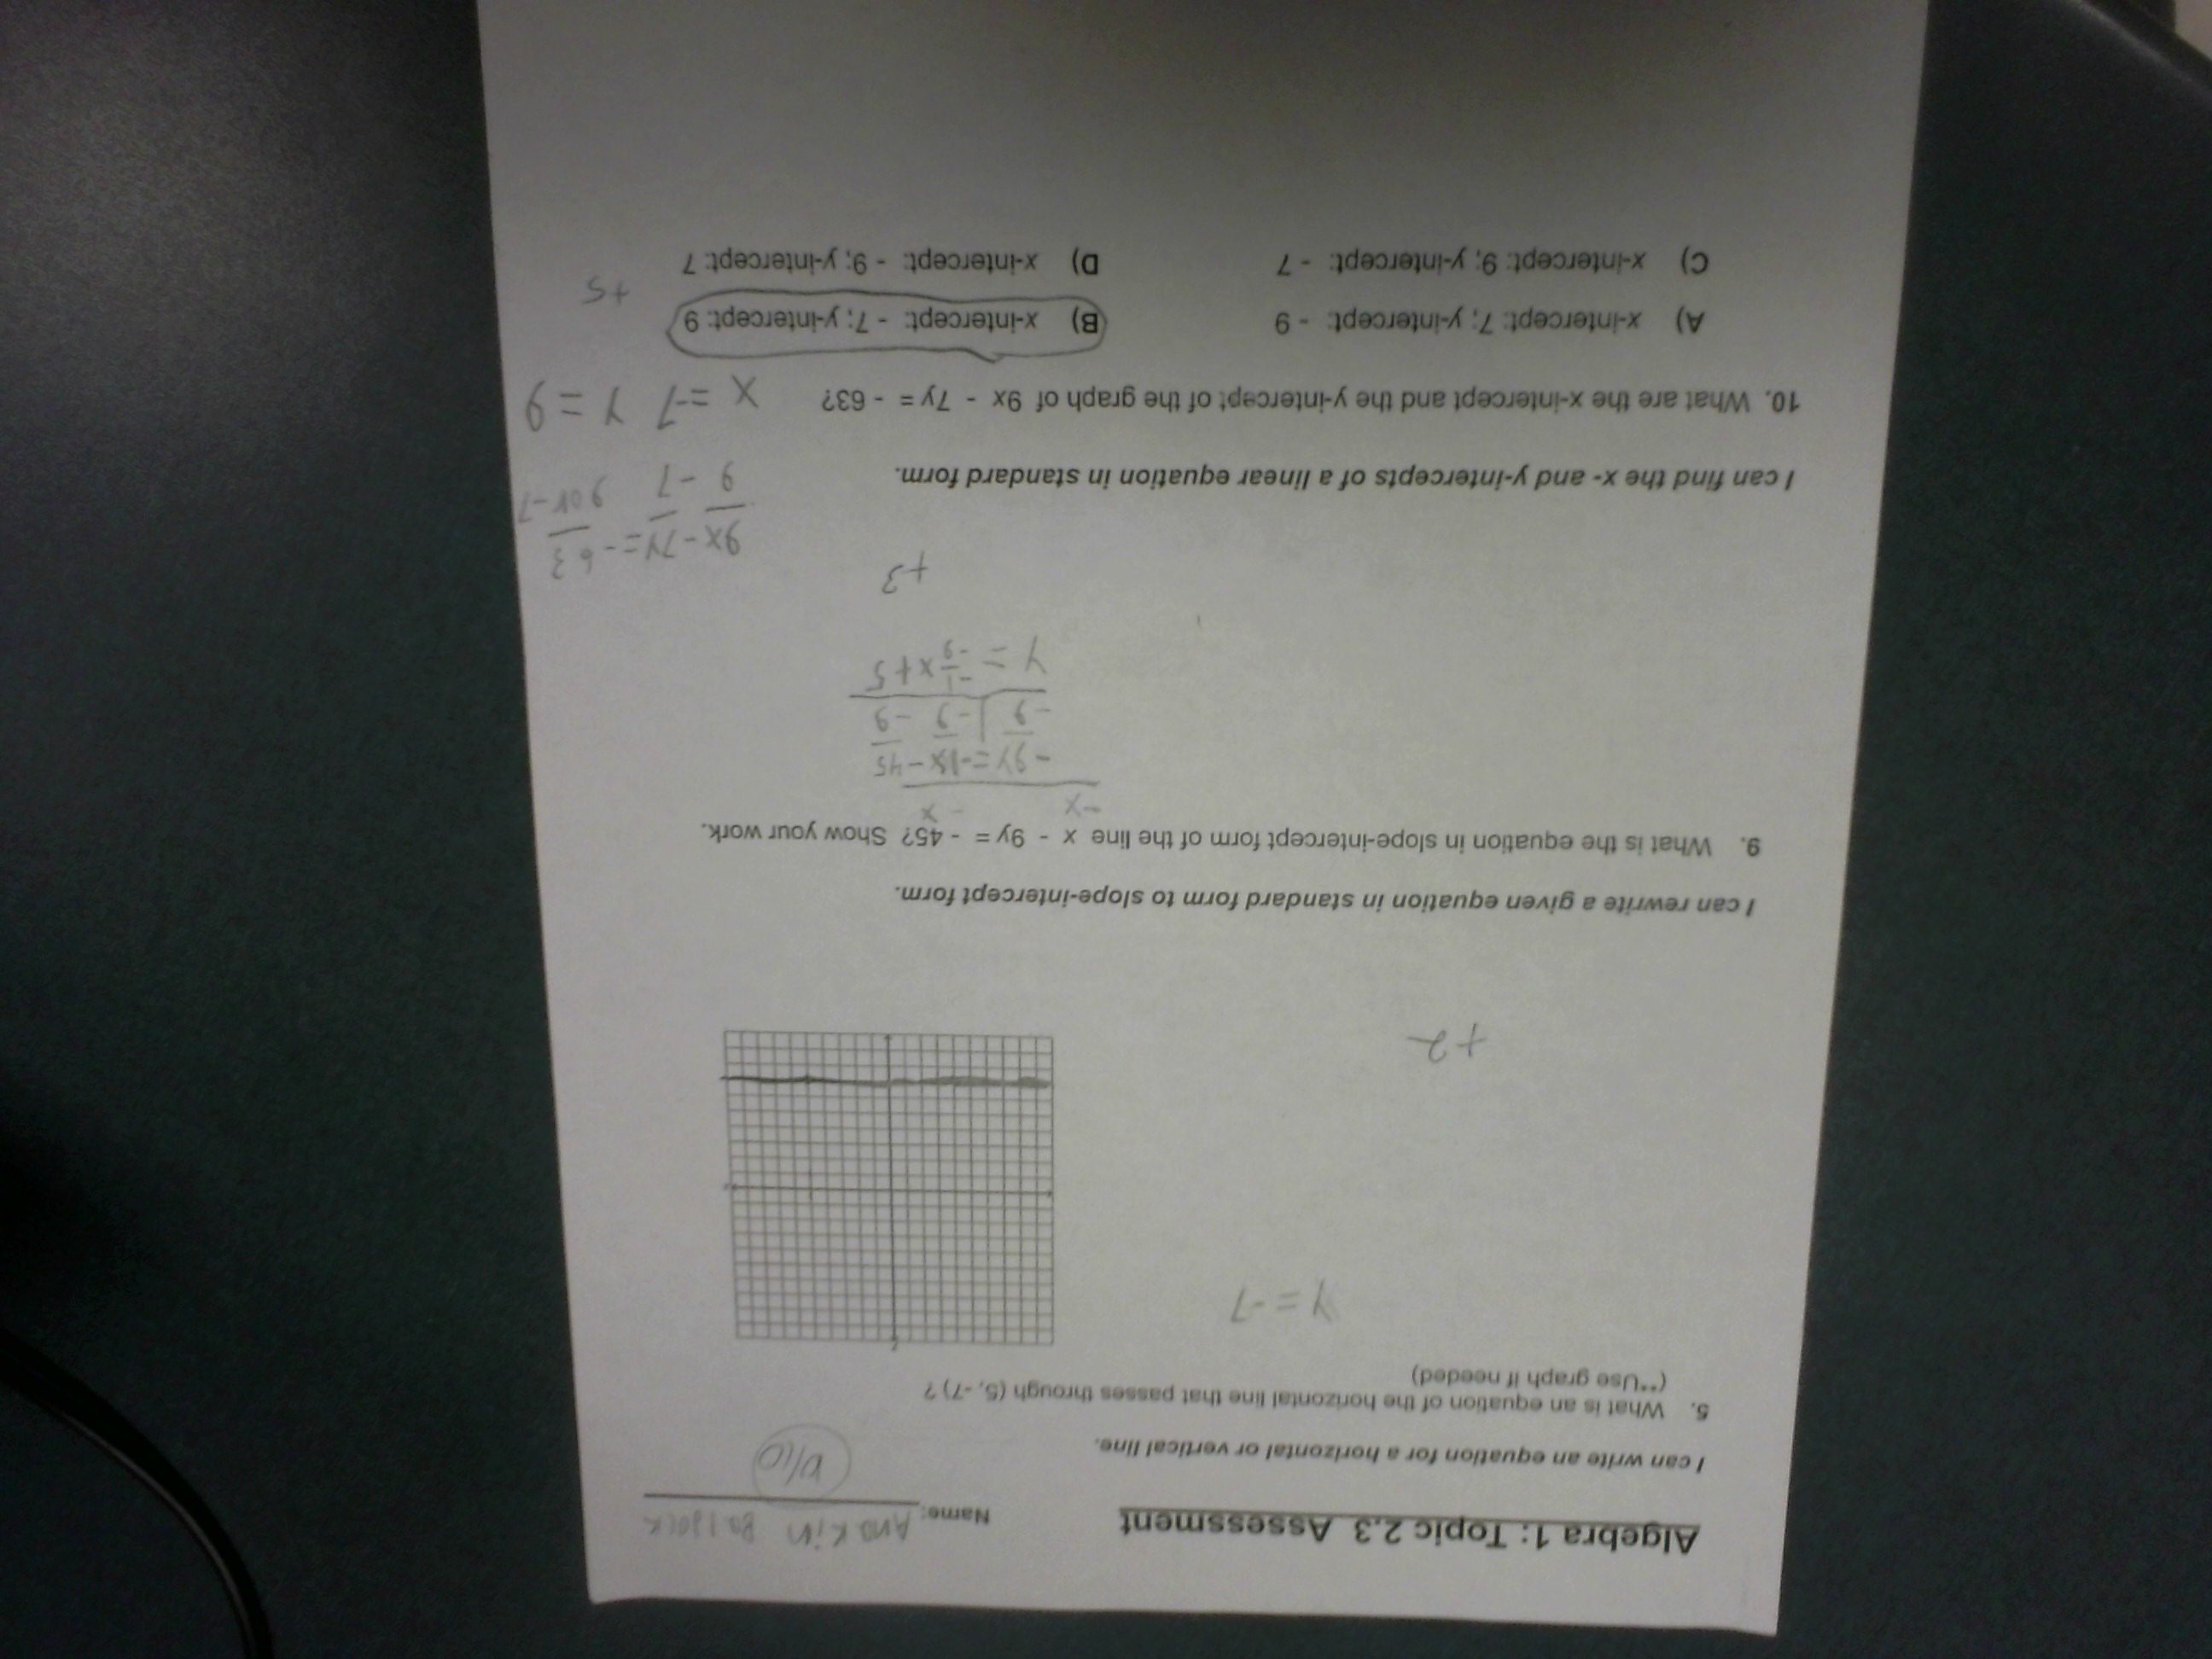 Algebra 1: Topic 2.3 Assessment
Name: Anakin Baldock
10/10
I can write an equation for a horizontal or vertical line.
5. What is an equation of the horizontal line that passes through (5, -7) ?
(**Use graph if needed)
y = -7
+2
I can rewrite a given equation in standard form to slope-intercept form.
9. What is the equation in slope-intercept form of the line x - 9y = - 45? Show your work.
-x - x
-9y = -1x - 45
-9 | -9 -9
y = -1/-9 x + 5
+3
9x - 7y = - 63
9 -7 9 or -7
I can find the x- and y-intercepts of a linear equation in standard form.
10. What are the x-intercept and the y-intercept of the graph of 9x - 7y = - 63?
x = -7 y = 9
A) x-intercept: 7; y-intercept: - 9
B) x-intercept: - 7; y-intercept: 9
+5
C) x-intercept: 9; y-intercept: - 7
D) x-intercept: - 9; y-intercept: 7